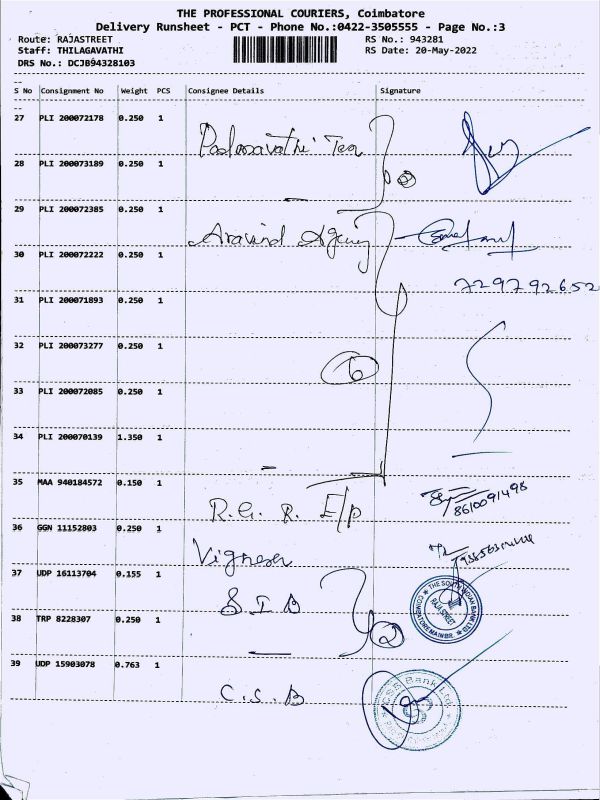 THE PROFESSIONAL COURIERS, Coimbatore
Delivery Runsheet - PCT - Phone No.:0422-3505555 - Page No.:3
Route: RAJASTREET RS No.: 943281
Staff: THILAGAVATHI RS Date: 20-May-2022
DRS No.: DCJB94328103
S No Consignment No Weight PCS Consignee Details Signature
27 PLI 200072178 0.250 1
Padmavathi Tea
28 PLI 200073189 0.250 1
29 PLI 200072385 0.250 1
Aravind Agency
30 PLI 200072222 0.250 1
729792652
31 PLI 200071893 0.250 1
32 PLI 200073277 0.250 1
6
33 PLI 200072085 0.250 1
34 PLI 200070139 1.350 1
35 MAA 940184572 0.150 1
R.G. R. E/p 8610091498
36 GGN 11152803 0.250 1
Vignesh
37 UDP 16113704 0.155 1
S I B
THE SOUTH INDIAN BANK LTD
RAJA STREET
COIMBATORE MAIN BR.
38 TRP 8228307 0.250 1
2
39 UDP 15903078 0.763 1
C.S.B
CSB Bank Ltd